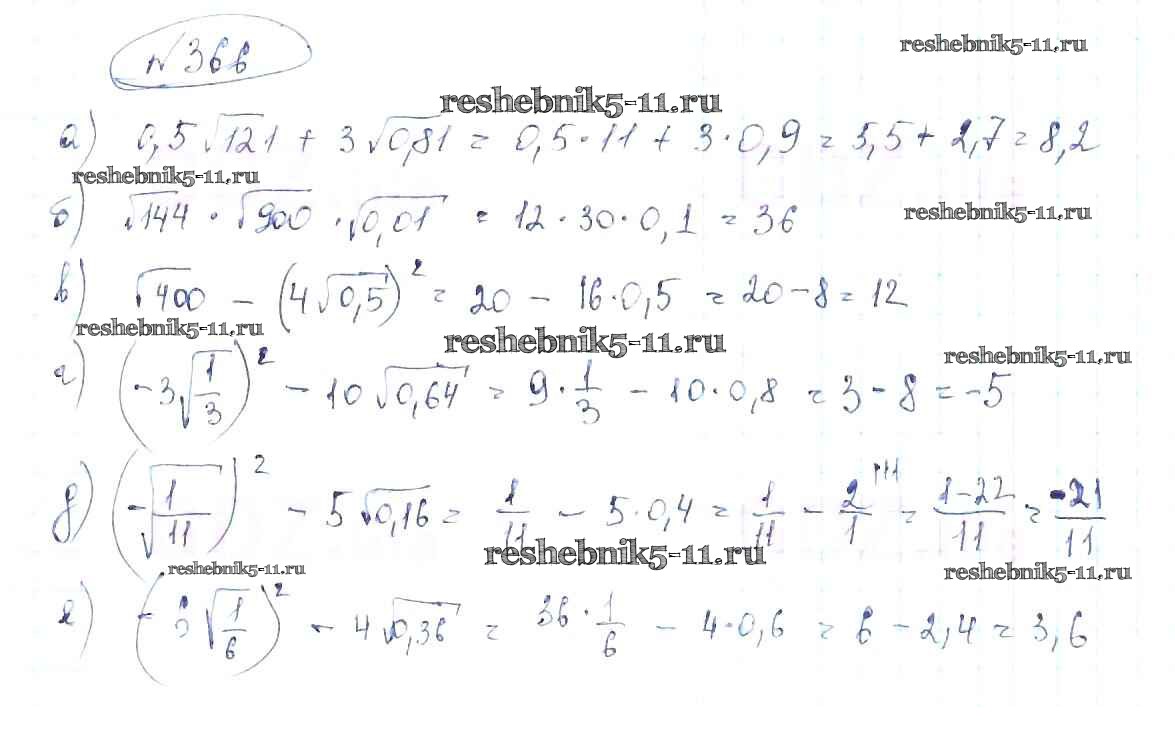 №366
reshebnik5-11.ru
reshebnik5-11.ru
а) 0,5√121 + 3√0,81 = 0,5·11 + 3·0,9 = 5,5 + 2,7 = 8,2
reshebnik5-11.ru
б) √144 · √900 · √0,01 = 12·30·0,1 = 36
reshebnik5-11.ru
в) √400 – (4√0,5)² = 20 – 16·0,5 = 20 – 8 = 12
reshebnik5-11.ru
reshebnik5-11.ru
reshebnik5-11.ru
г) (-3√1/3)² – 10√0,64 = 9·1/3 – 10·0,8 = 3 – 8 = -5
д) (-√1/11)² – 5√0,16 = 1/11 – 5·0,4 = 1/11 – 2/1 = 1-22/11 = -21/11
reshebnik5-11.ru
reshebnik5-11.ru
reshebnik5-11.ru
е) (-6√1/6)² – 4√0,36 = 36·1/6 – 4·0,6 = 6 – 2,4 = 3,6